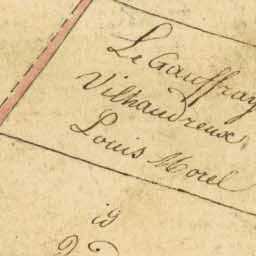 Le Gauffray
Vilhaudreux
Louis Morel
19